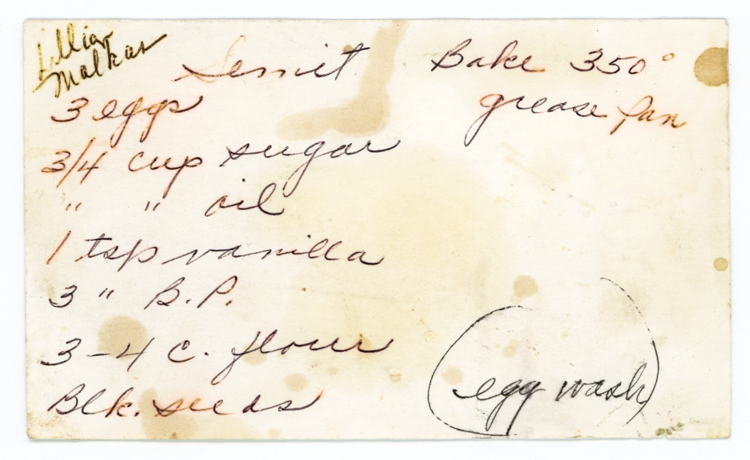 Lillian
Malkas
Semit
Bake 350°
grease pan
3 eggs
3/4 cup sugar
" " oil
1 tsp vanilla
3 " B.P.
3-4 c. flour
Blk. seeds
(egg wash)